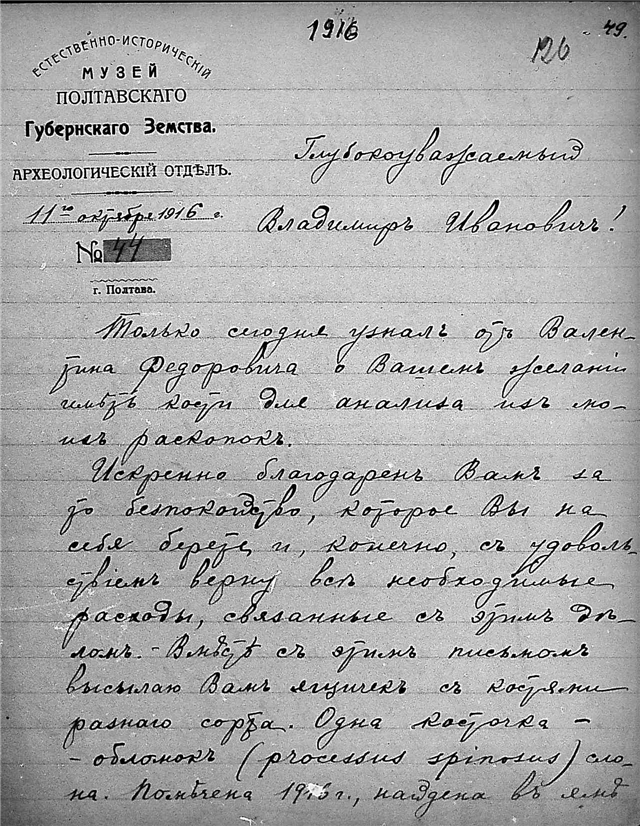 1916
49.
126
ЕСТЕСТВЕННО-ИСТОРИЧЕСКІЙ
МУЗЕЙ
ПОЛТАВСКАГО
Губернскаго Земства.
АРХЕОЛОГИЧЕСКІЙ ОТДѢЛЪ.
11го октября 1916 г.
№ 44
г. Полтава.
Глубокоуважаемый
Владимиръ Ивановичъ!
Только сегодня узналъ отъ Вален-
тина Федоровича о Вашемъ желаніи
имѣть кости для анализа изъ мо-
ихъ раскопокъ.
Искренно благодаренъ Вамъ за
то безпокойство, которое Вы на
себя берете, и, конечно, съ удоволь-
ствіемъ верну всѣ необходимые
расходы, связанные съ этимъ дѣ-
ломъ. - Вмѣстѣ съ этимъ письмомъ
высылаю Вамъ ящичекъ съ костями
разнаго сорта. Одна косточка -
- обломокъ (processus spinosus) сло-
на. Помѣчена 1916 г., найдена въ ямѣ